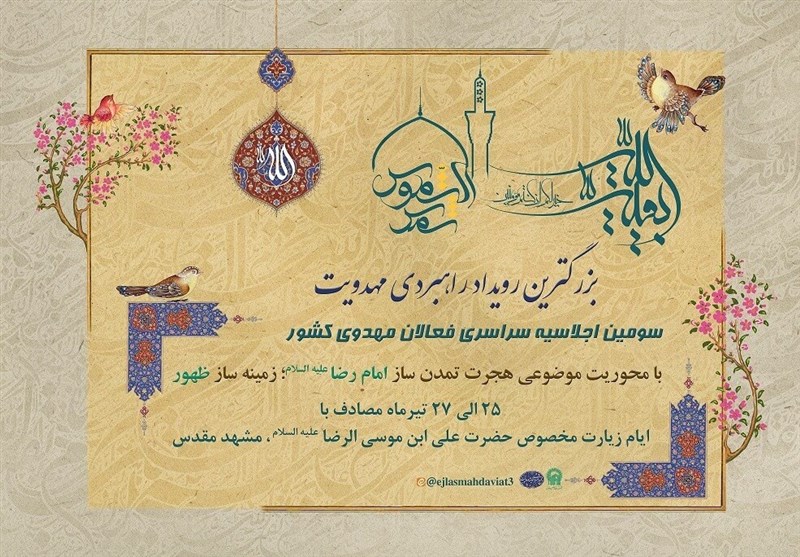 بقیت الله
الله
بزرگترین رویداد راهبردی مهدویت
سومین اجلاسیه سراسری فعالان مهدوی کشور
با محوریت موضوعی هجرت تمدن ساز امام رضا علیه السلام؛ زمینه ساز ظهور
۲۵ الی ۲۷ تیرماه مصادف با
ایام زیارت مخصوص حضرت علی ابن موسی الرضا علیه السلام، مشهد مقدس
@ejlasmahdaviat3